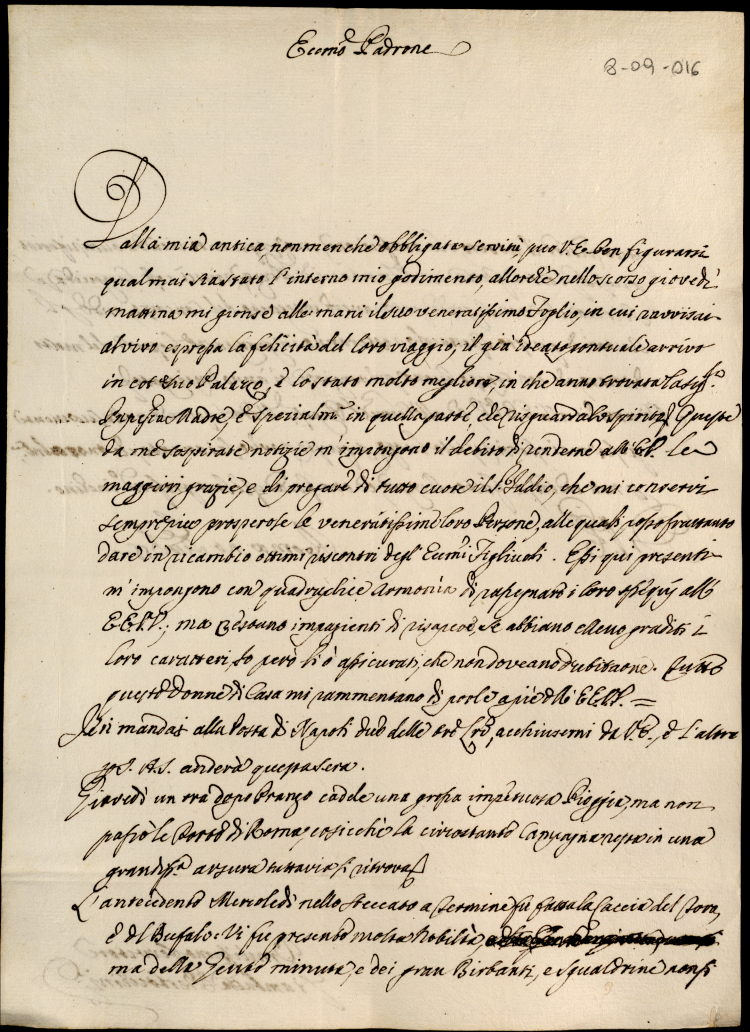 Eccmo Padrone
8-09-016
Dalla mia antica, non men che obbligata servitù, può V. E. ben figurarsi
qual mai sia stato l'interno mio godimento, allorchè nello scorso giovedì
mattina mi gionse alle mani il suo veneratissimo Foglio, in cui ravvisai
al vivo espressa la felicità del loro viaggio; il già ideato pontuale arrivo
in cot Palazzo, e lo stato molto megliore, in che anno trovata la Sigra
Madre, e spezialmte in quella parte, che risguarda lo spirito. Queste
da me sospirate notizie m'impongono il debito di renderne all' EE. VV. le
maggiori grazie, e di pregare di tutto cuore il S. Iddio, che mi conservi
sempre più prosperose le veneratissime loro Persone, alle quali posso frattanto
dare in ricambio ottimi riscontri degl' Eccmi Figliuoli. Essi qui presenti
m'impongono con quadruplice armonia di rassegnare i loro ossequj all'
EE. VV.; ma restano impazienti di risapere, se abbiano elleno graditi i
loro caratteri, Io però li ò assicurati, che non doveano dubitarne. Tutte
queste Donne di Casa mi rammentano di porle a piè dell' EE. VV. =
Jeri mandai alla Posta di Napoli due delle tre Lre, acchiusemi da V. E., e l'altra
p S. A. S. anderà questa sera.
Giovedì un ora dopo Pranzo cadde una grossa impetuosa Pioggia, ma non
passò le Porte di Roma, cosicchè la circostante Campagna resta in una
grandissa arsura tuttavia si ritrova
L'antecedente Mercoledì nello steccato a Termine fù fatta la Caccia del Toro,
e del Bufalo: Vi fu presente molta Nobiltà
ma della Gente minuta, e dei gran Birbanti, e sgualdrine non si